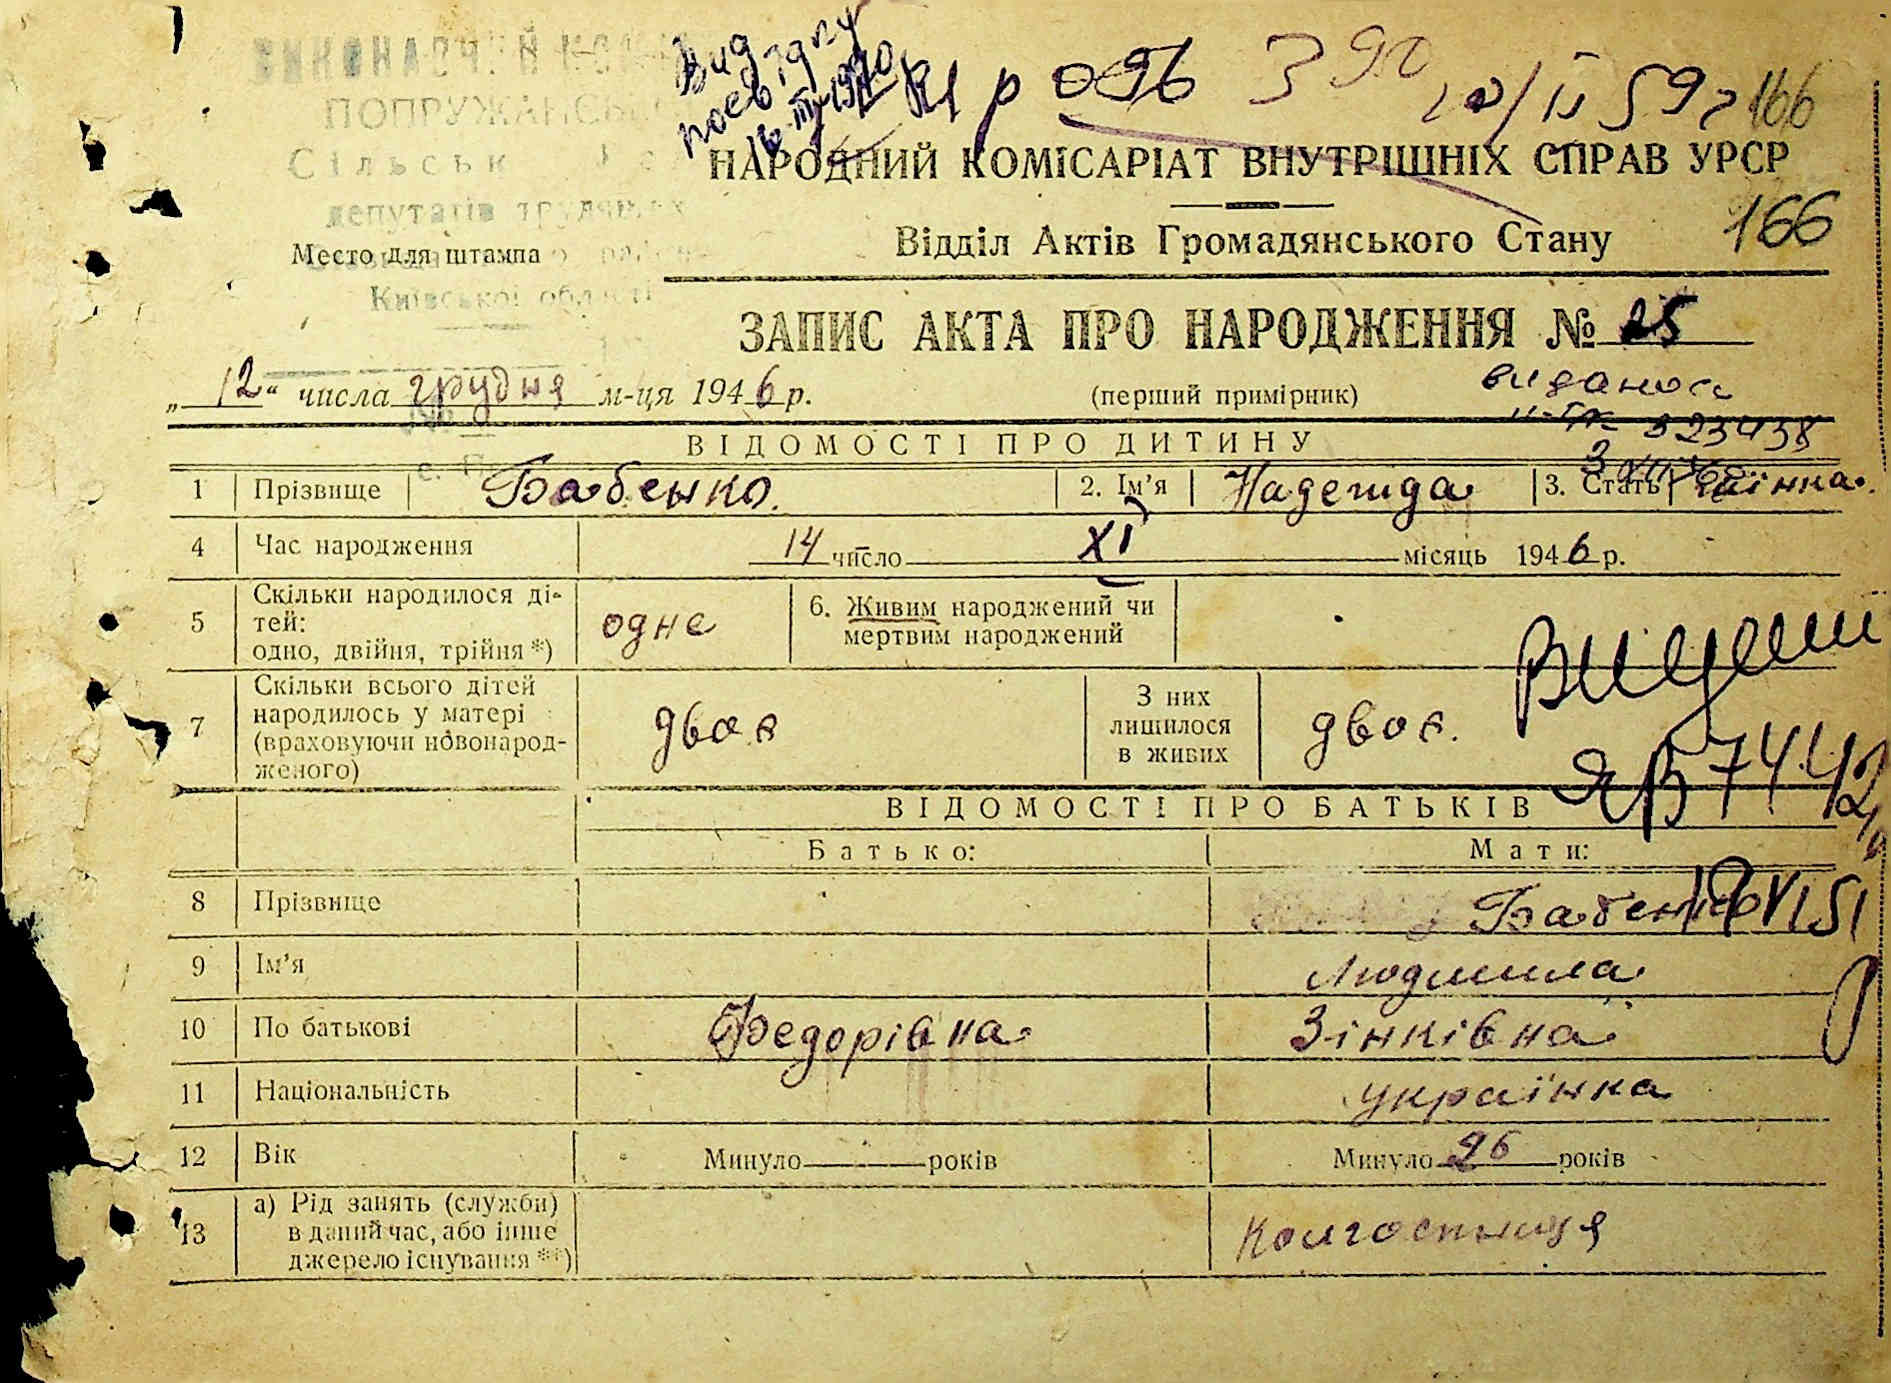 ВИКОНАВЧИЙ
ПОПРУЖАНСЬ
Сільськ
депутатів трудящих
Место для штампа
Київської області
Вид
166
НАРОДНИЙ КОМІСАРІАТ ВНУТРІШНІХ СПРАВ УРСР
Відділ Актів Громадянського Стану 166
ЗАПИС АКТА ПРО НАРОДЖЕННЯ № 25
„12“ числа грудня м-ця 1946 р. (перший примірник)
ВІДОМОСТІ ПРО ДИТИНУ
1 Прізвище Бабенко. 2. Ім’я Надежда 3. Стать жінка.
4 Час народження 14 число XI місяць 1946 р.
5 Скільки народилося ді-
тей:
одно, двійня, трійня *) одне 6. Живим народжений чи
мертвим народжений
7 Скільки всього дітей
народилось у матері
(враховуючи новонарод-
женого) двоє З них
лишилося
в живих двоє.
ВІДОМОСТІ ПРО БАТЬКІВ
Батько: Мати:
8 Прізвище Бабенко
9 Ім’я Людмила
10 По батькові Федорівна Зінківна
11 Національність українка
12 Вік Минуло років Минуло 26 років
13 а) Рід занять (служби)
в даний час, або інше
джерело існування **) Колгоспниця